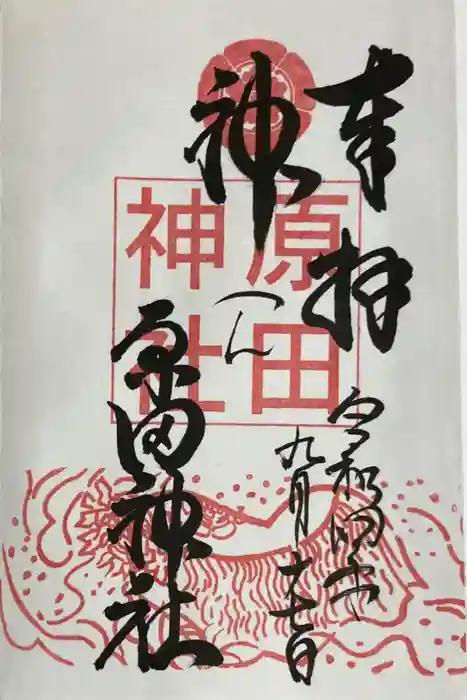 奉拝
令和四年
九月
日
神
原田神社
原田
神社